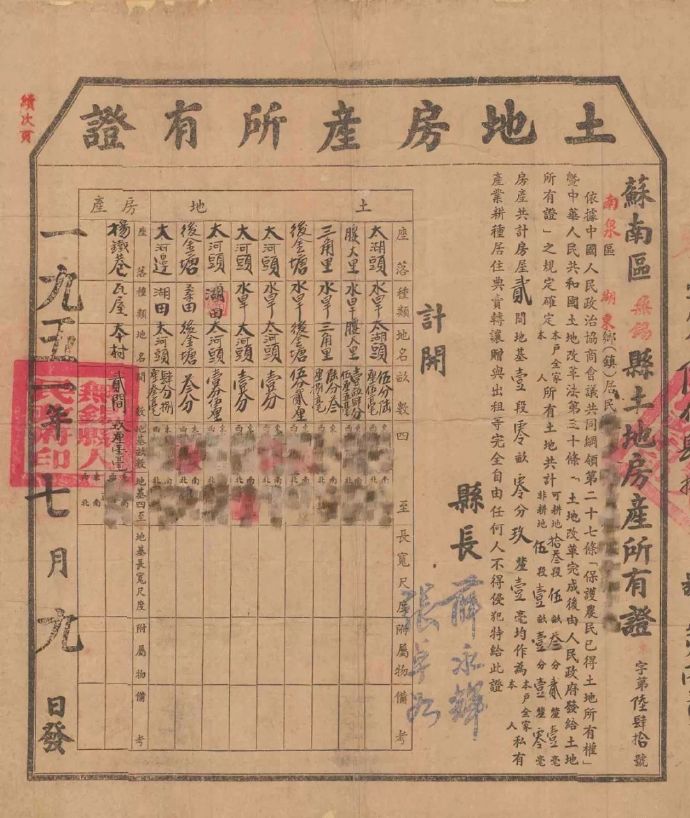 土地房產所有證
續次頁
蘇南區無錫縣土地房產所有證
東字第陸肆拾號
南泉區湖東鄉(鎮)居民
依據中國人民政治協商會議共同綱領第二十七條「保護農民已得土地所有權」
暨中華人民共和國土地改革法第三十條「土地改革完成後由人民政府發給土地
所有證」之規定確定本戶全家本人所有土地共計可耕地拾叁段伍畝叁分貳釐壹毫非耕地伍段壹畝壹分壹釐零毫
房產共計房屋貳間地基壹段零畝零分玖釐壹毫均作為本戶全家本人私有
產業耕種居住典賣轉讓贈與出租等完全自由任何人不得侵犯特給此證
計開
縣長
薛永輝
張卓如
土地
房產
座落 種類 地名 畝數 四至 長寬尺度 附屬物 備考
太湖頭 水旱 太湖頭
腰大里 水旱 腰大里
三角里 水旱 三角里
後金塘 水旱 後金塘 伍分貳厘
大河頭 水旱 大河頭 壹分
大河頭 水旱 大河頭 壹叁分
大河頭 湖田 大河頭 壹分厘
後金塘 後金塘 叁分
大河邊 湖田 大河頭
座落 種類 地名 間數 地基畝數 地基四至 地基長寬尺度 附屬物 備考
楊鐵巷 瓦屋 本村 貳間 玖厘壹毫
無錫縣人民政府印
一九五一年七月九日發